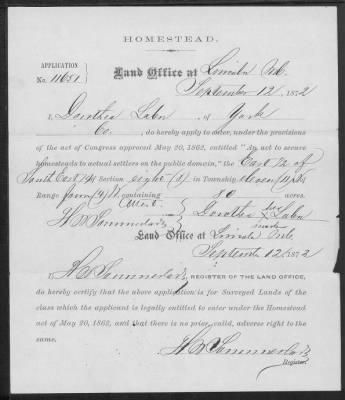 HOMESTEAD.
APPLICATION
No. 11651
Land Office at Lincoln Neb.
September 12, 1872
I, Dorothea Lahn of York
Co., do hereby apply to enter, under the provisions
of the act of Congress approved May 20, 1862, entitled "An act to secure
homesteads to actual settlers on the public domain," the East 1/2 of
South East 1/4 Section eight (8) in Township
Range four (4) W containing 80 acres.
Attest
Dorothea her x mark Lahn
Land Office at Lincoln Neb.
September 12, 1872
I, REGISTER OF THE LAND OFFICE,
do hereby certify that the above application is for Surveyed Lands of the
class which the applicant is legally entitled to enter under the Homestead
act of May 20, 1862, and that there is no prior, valid, adverse right to the
same.
Register.